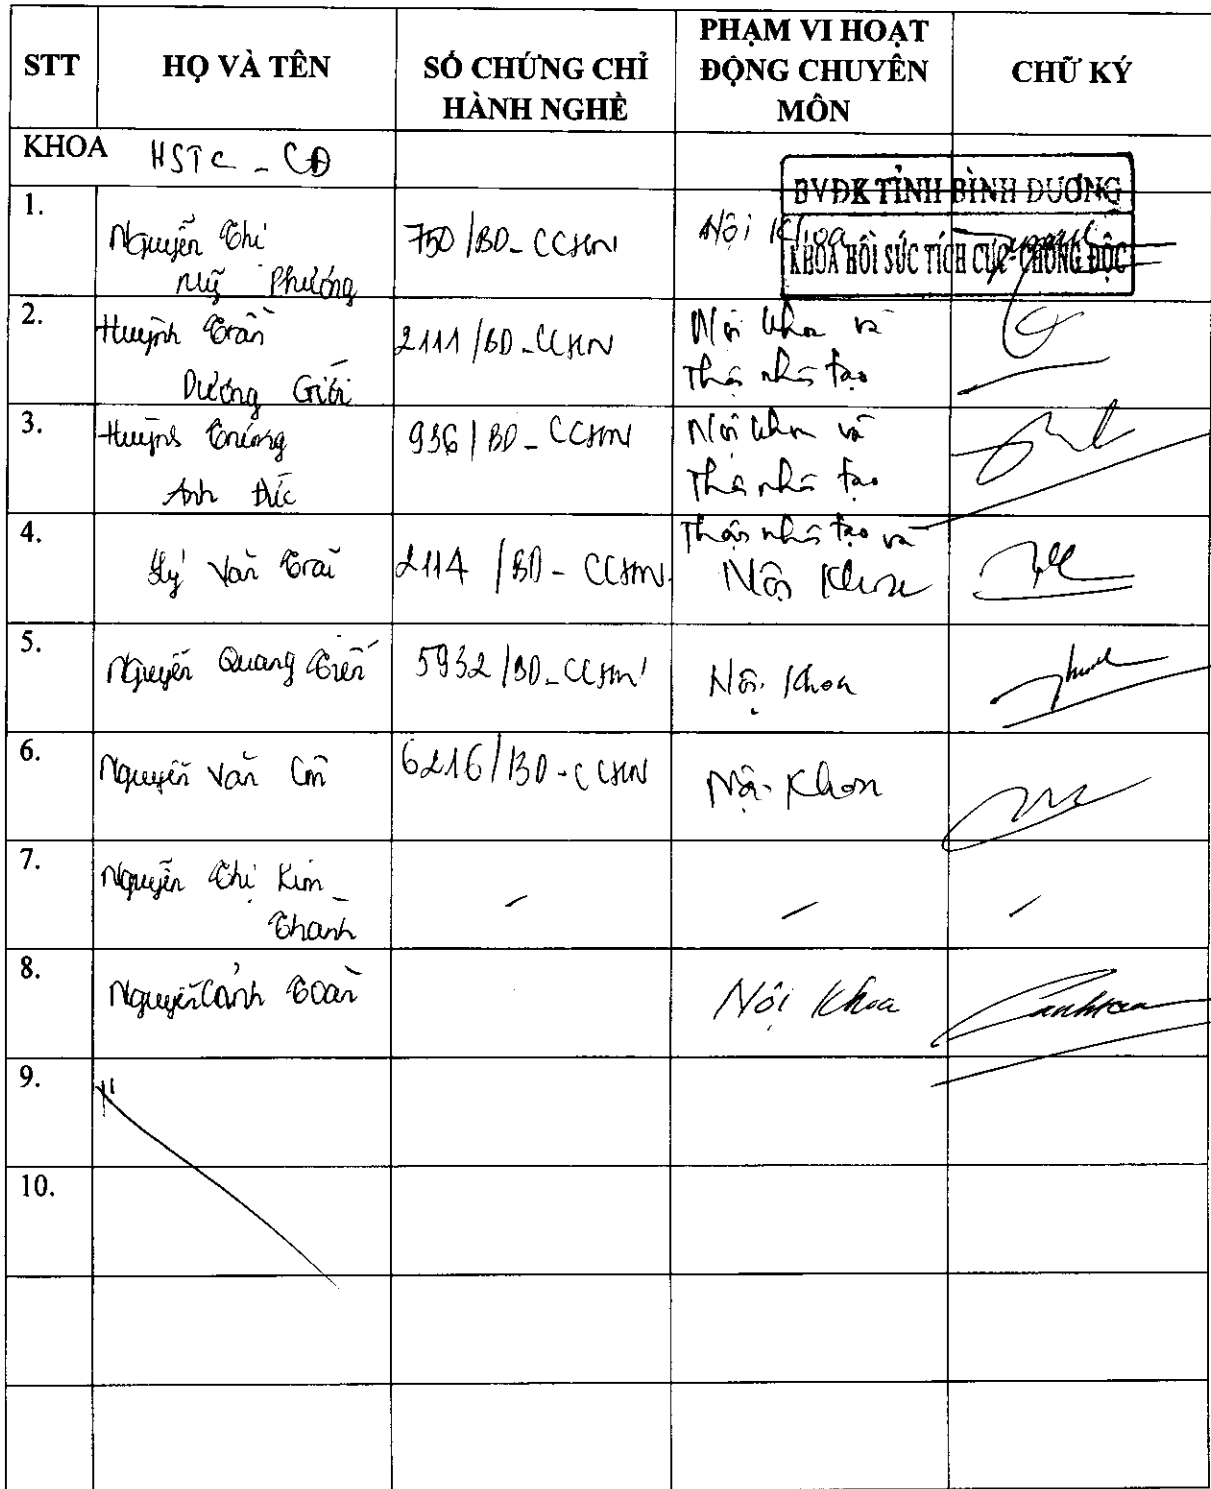 STT HỌ VÀ TÊN SỐ CHỨNG CHỈ HÀNH NGHỀ PHẠM VI HOẠT ĐỘNG CHUYÊN MÔN CHỮ KÝ
KHOA HSTC - CĐ
BVĐK TỈNH BÌNH DƯƠNG
KHOA HỒI SỨC TÍCH CỰC-CHỐNG ĐỘC
1. Nguyễn Thị Mỹ Phượng 750/BD-CCHN Nội Khoa
2. Huỳnh Trần Dương Giới 2111/BD-CCHN Nội khoa và
Thận nhân tạo
3. Huỳnh Trương Anh Đức 936/BD-CCHN Nội khoa và
Thận nhân tạo
4. Lý Văn Trãi 2114/BD-CCHN Thận nhân tạo và
Nội Khoa
5. Nguyễn Quang 5932/BD-CCHN Nội Khoa
6. Nguyễn Văn 6216/BD-CCHN Nội Khoa
7. Nguyễn Thị Kim Thanh - - -
8. Nguyễn Cảnh Toàn Nội Khoa
9.
10.